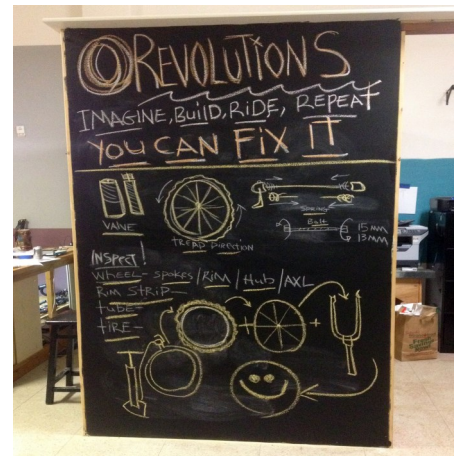 REVOLUTIONS
IMAGINE, BUILD, RIDE, REPEAT
YOU CAN FIX IT
VALVE
TREAD DIRECTION
SPRING
Bolt
15 MM
13 MM
INSPECT!
WHEEL- SPOKES/RIM/HUB/AXL
RIM STRIP-
tube-
tIRE-